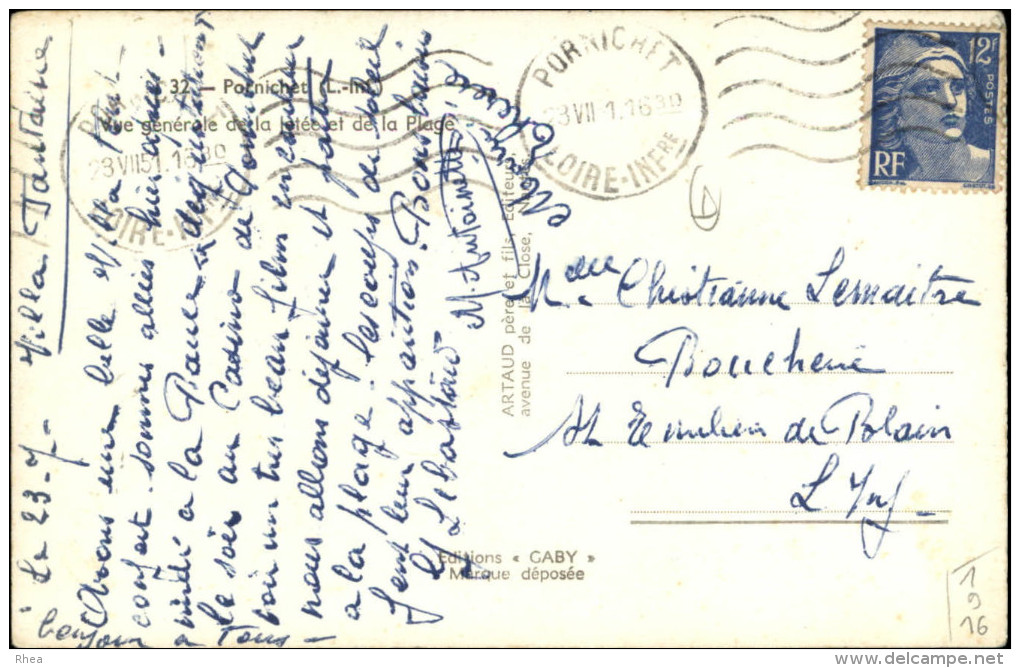 Le 23-7- Villa
Avons une belle
confort. sommes allées hier après-
midi à la Baule
le soir au Casino de
voir un très beau film
nous allons déjeuner et partir
à la plage. les coups de soleil
font leur apparition. Bons baisers
M. Antoinette
bonjour à Tous
32 — Pornichet (L.-Inf.)
Vue générale de la Jetée et de la Plage
PORNICHET
23 VII 51 16 30
LOIRE-INFRE
PORNICHET
23 VII 1 16 30
LOIRE-INFRE
12F
POSTES
RF
ARTAUD père et fils, Editeurs
avenue de la Close, Nantes
Melle Christianne Lemaitre
Boucherie
St Emilien de Blain
L. Inf-
Editions « GABY »
Marque déposée
1
9
16
Rhea
delcampe.net